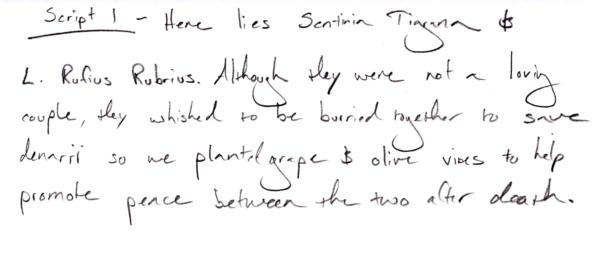 Script 1 - Here lies Sentinia Tigrana &
L. Rufius Rubrius. Although they were not a loving
couple, they whished to be burried together to save
denarii so we planted grape & olive vines to help
promote peace between the two after death.